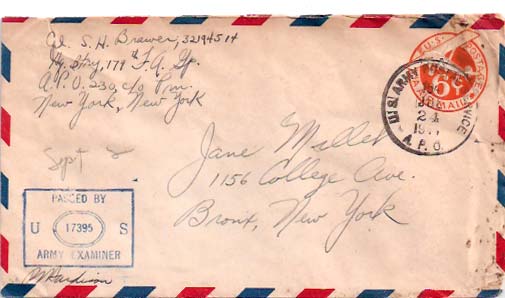 Cpl. S. H. Brawer, 32194514
Hq. Btry, 179th F.A. Gp.
A.P.O. 230, c/o P.m.
New York, New York
U.S. POSTAGE
6¢
AIR MAIL
U.S. ARMY POSTAL SERVICE
24
A.P.O.
Sept 2
Jane Miller
1156 College Ave.
Bronx, New York
PASSED BY
U 17395 S
ARMY EXAMINER